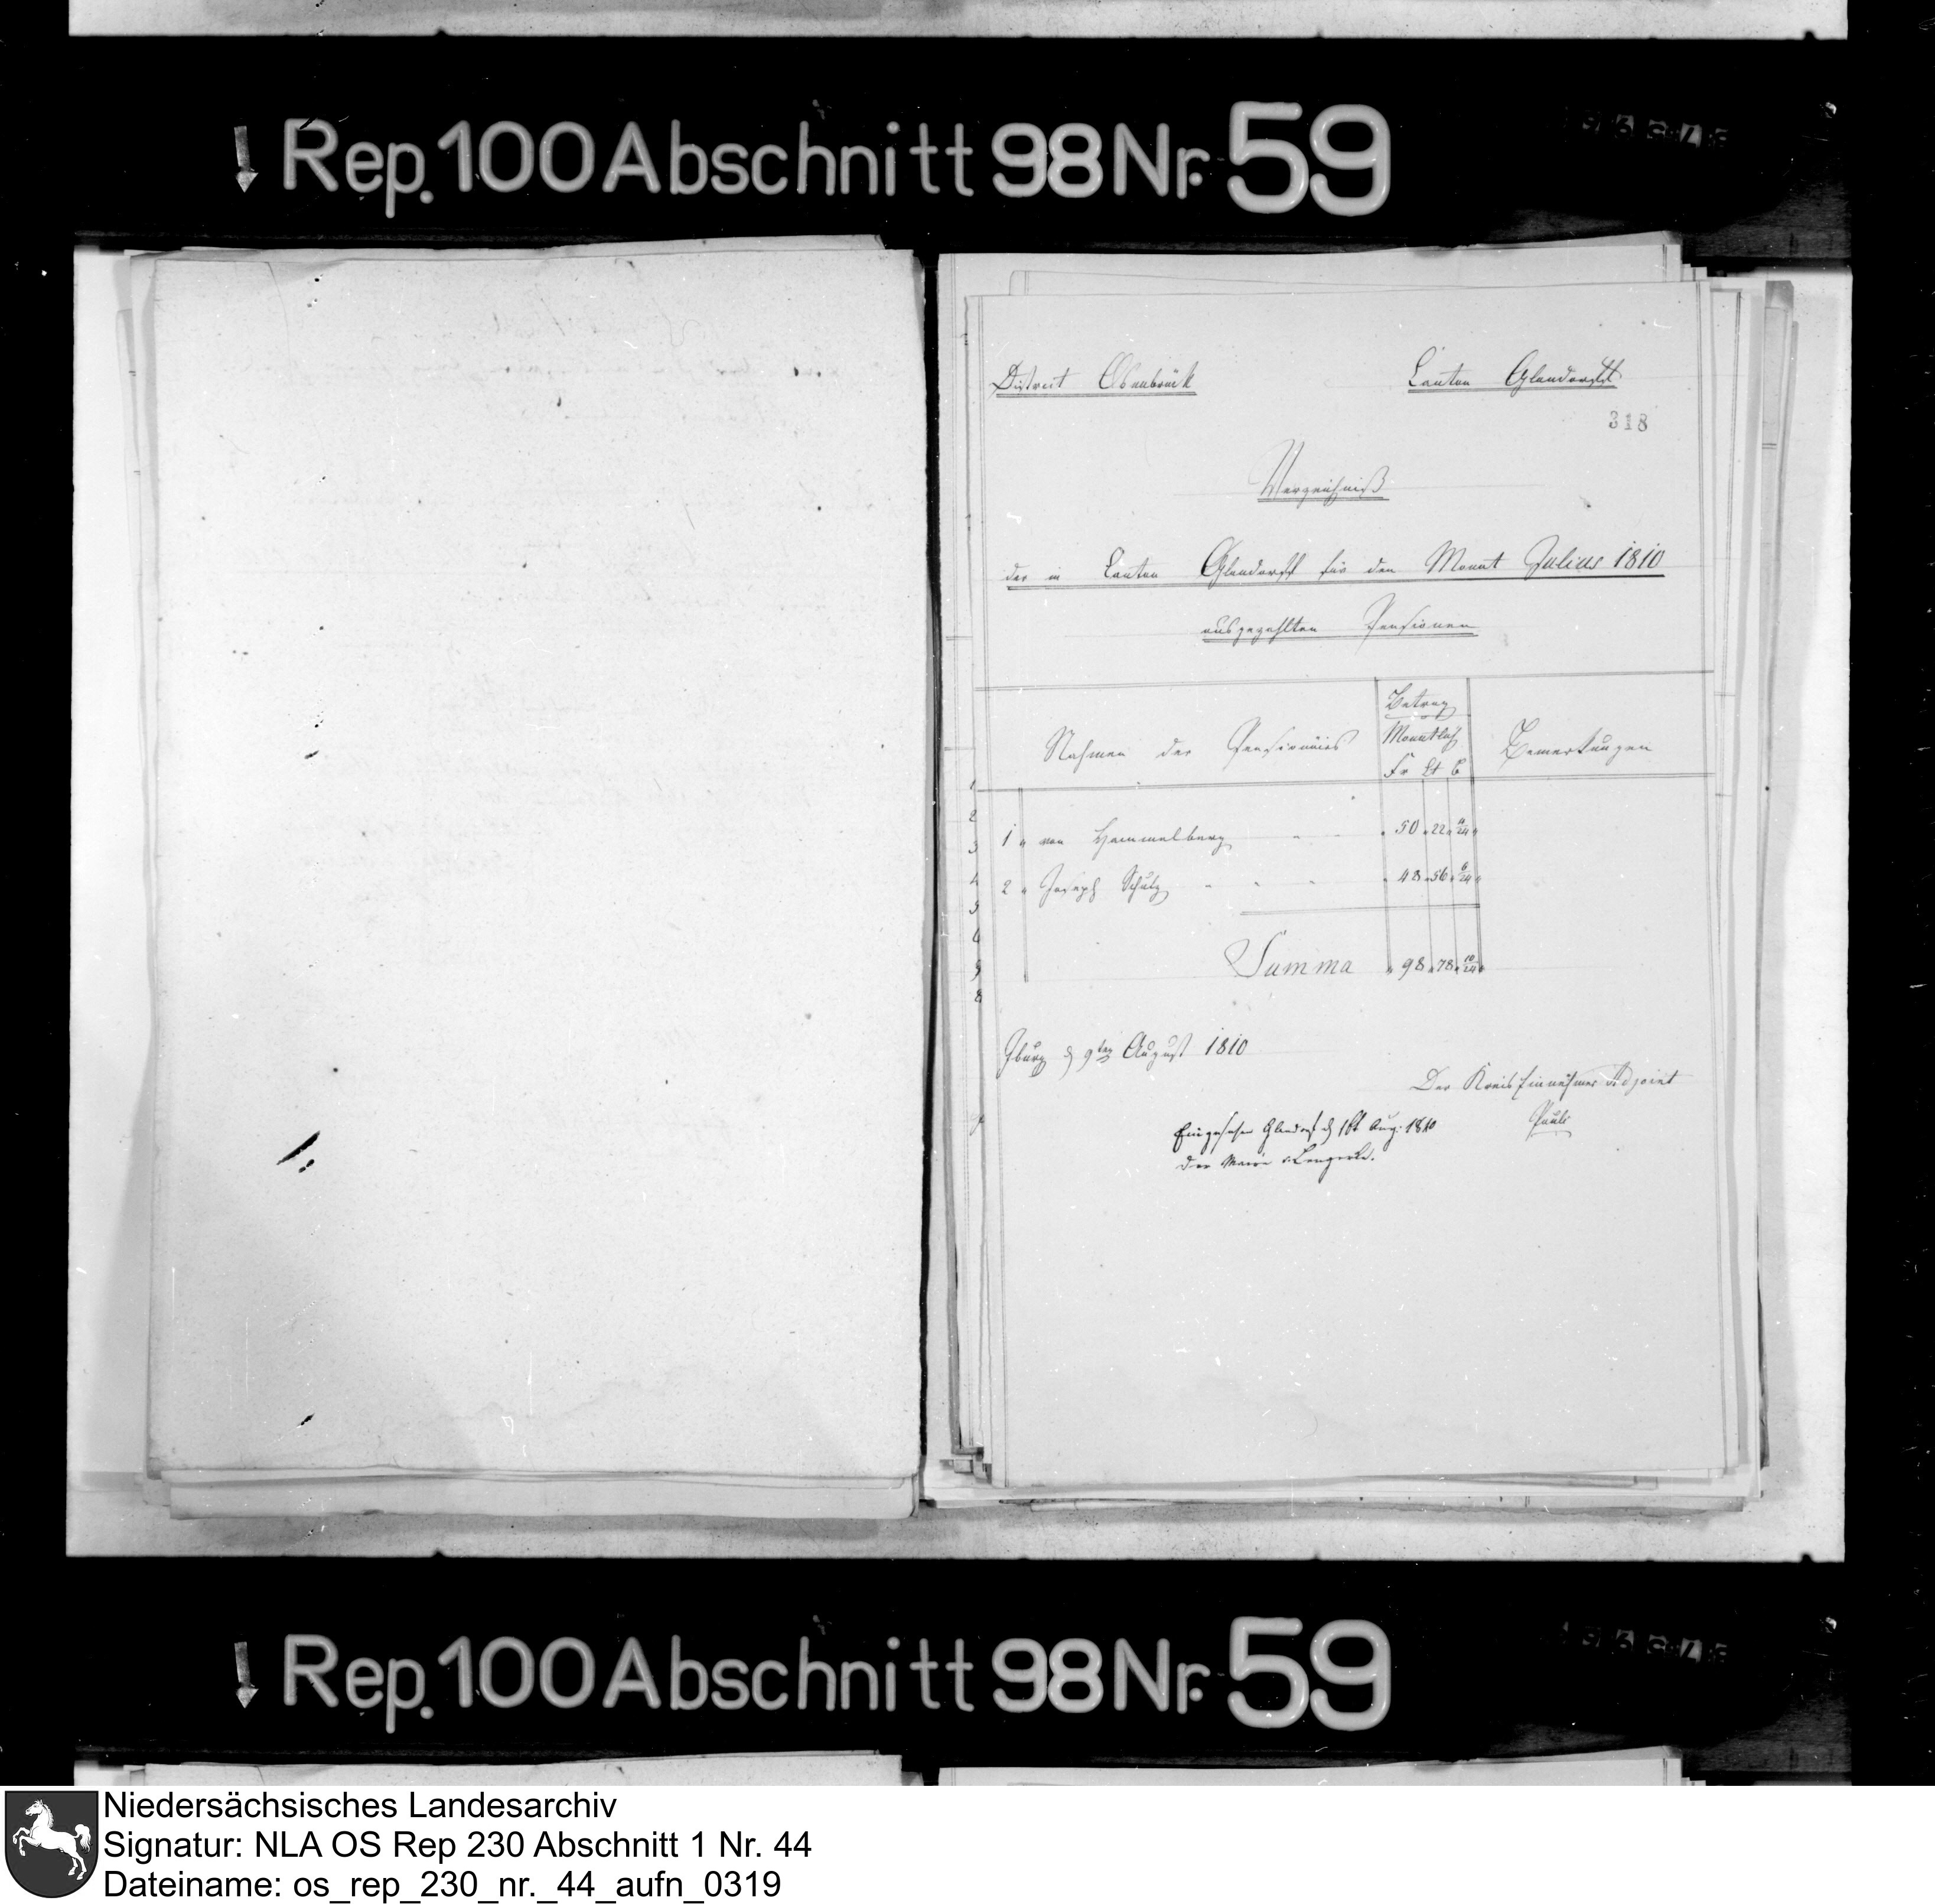 Rep. 100 Abschnitt 98 Nr. 59
District Osnabrück
Canton Glandorff
318
Verzeichniß
der im Canton Glandorff für den Monat Julius 1810
ausgezahlten Pensionen
Nahmen der Pensionairs
Betrag
Monatlich
Fr Ct
Bemerkungen
1 von Hammelberg 50 22 4/24
2 Joseph Schütz 48 56 6/24
Summa 98 78 10/24
Iburg d 9ten August 1810
Der Kreis Einnehmer Adjoint
Pauli
Eingesehen Glandorf d Aug. 1810
Der Maire v Lengerke.
Rep. 100 Abschnitt 98 Nr. 59
Niedersächsisches Landesarchiv
Signatur: NLA OS Rep 230 Abschnitt 1 Nr. 44
Dateiname: os_rep_230_nr._44_aufn_0319